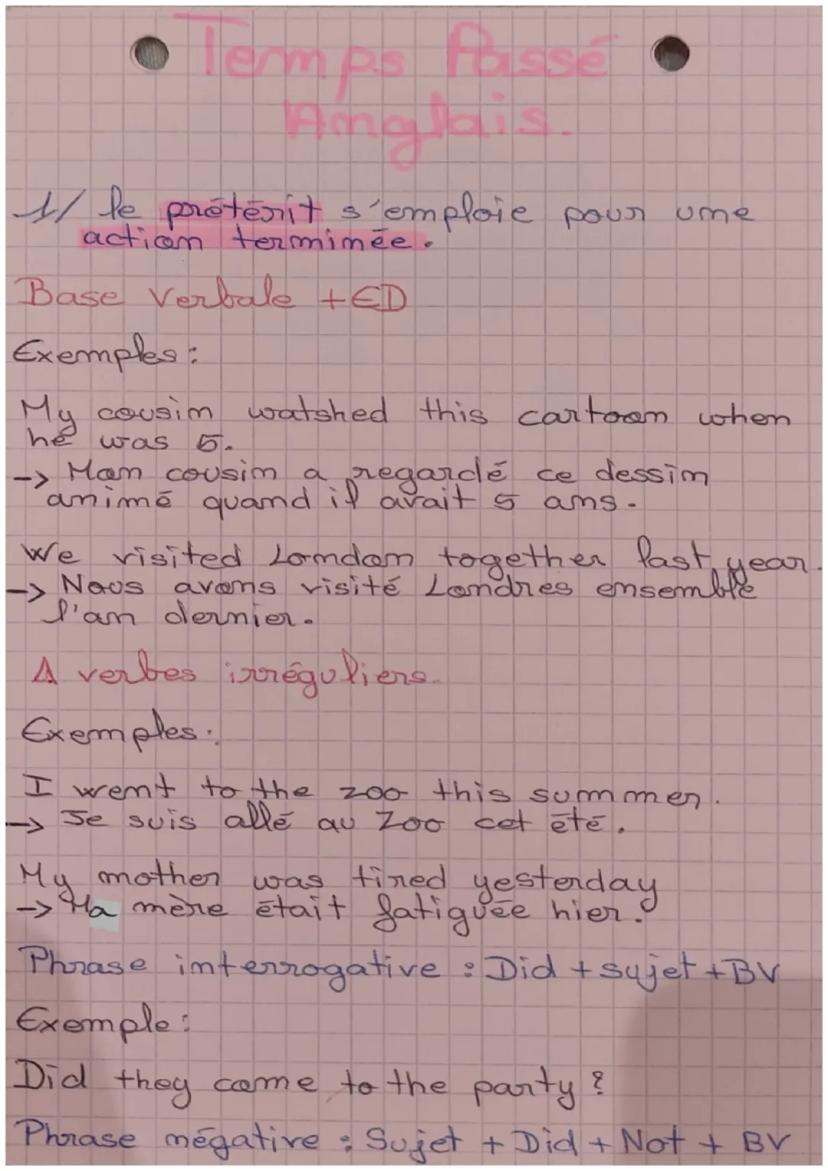 Temps Passé
Anglais.
1/ le prétérit s'emploie pour une
action terminée.
Base verbale +ED
Exemples:
My cousin watshed this cartoon when
he was 5.
-> Mon cousin a regardé ce dessin
animé quand il avait 5 ans.
We visited London together last year.
-> Nous avons visité Londres ensemble
l'an dernier.
Δ verbes irréguliers.
Exemples:
I went to the zoo this summer.
-> Je suis allé au Zoo cet été.
My mother was tired yesterday
-> Ma mère était fatiguée hier.
Phrase interrogative : Did + sujet + BV
Exemple:
Did they come to the party?
Phrase négative : Sujet + Did + Not + BV